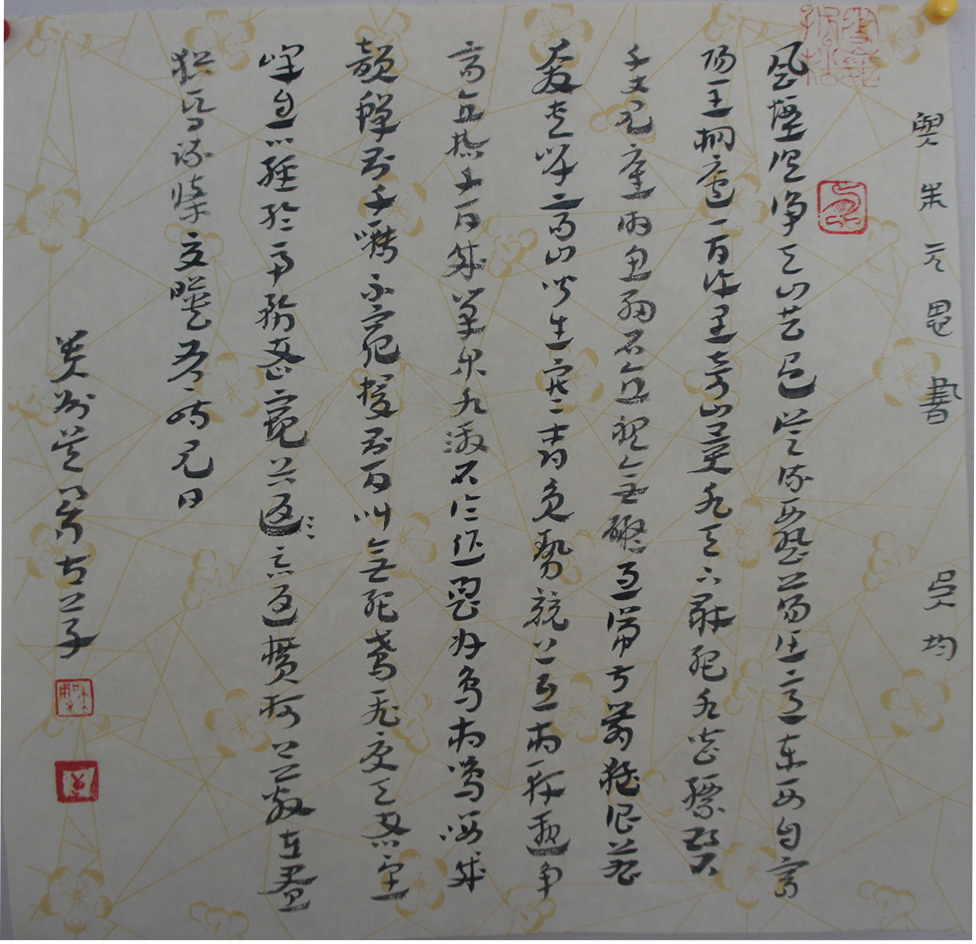 與朱元思書 吳均
風煙俱淨天山共色從流飄蕩任意東西自富
陽至桐廬一百許里奇山異水天下獨絕水皆縹碧
千丈見底游魚細石直視無礙急湍甚箭猛浪若
奔夾岸高山皆生寒樹負勢競上互相軒邈爭
高直指千百成峰泉水激石泠泠作響好鳥相鳴嚶嚶成
韻蟬則千囀不窮猿則百叫無絕鳶飛戾天者望
峰息心經綸世務者窺谷返忘返橫柯上蔽在晝
猶昏疏條交映有時見日